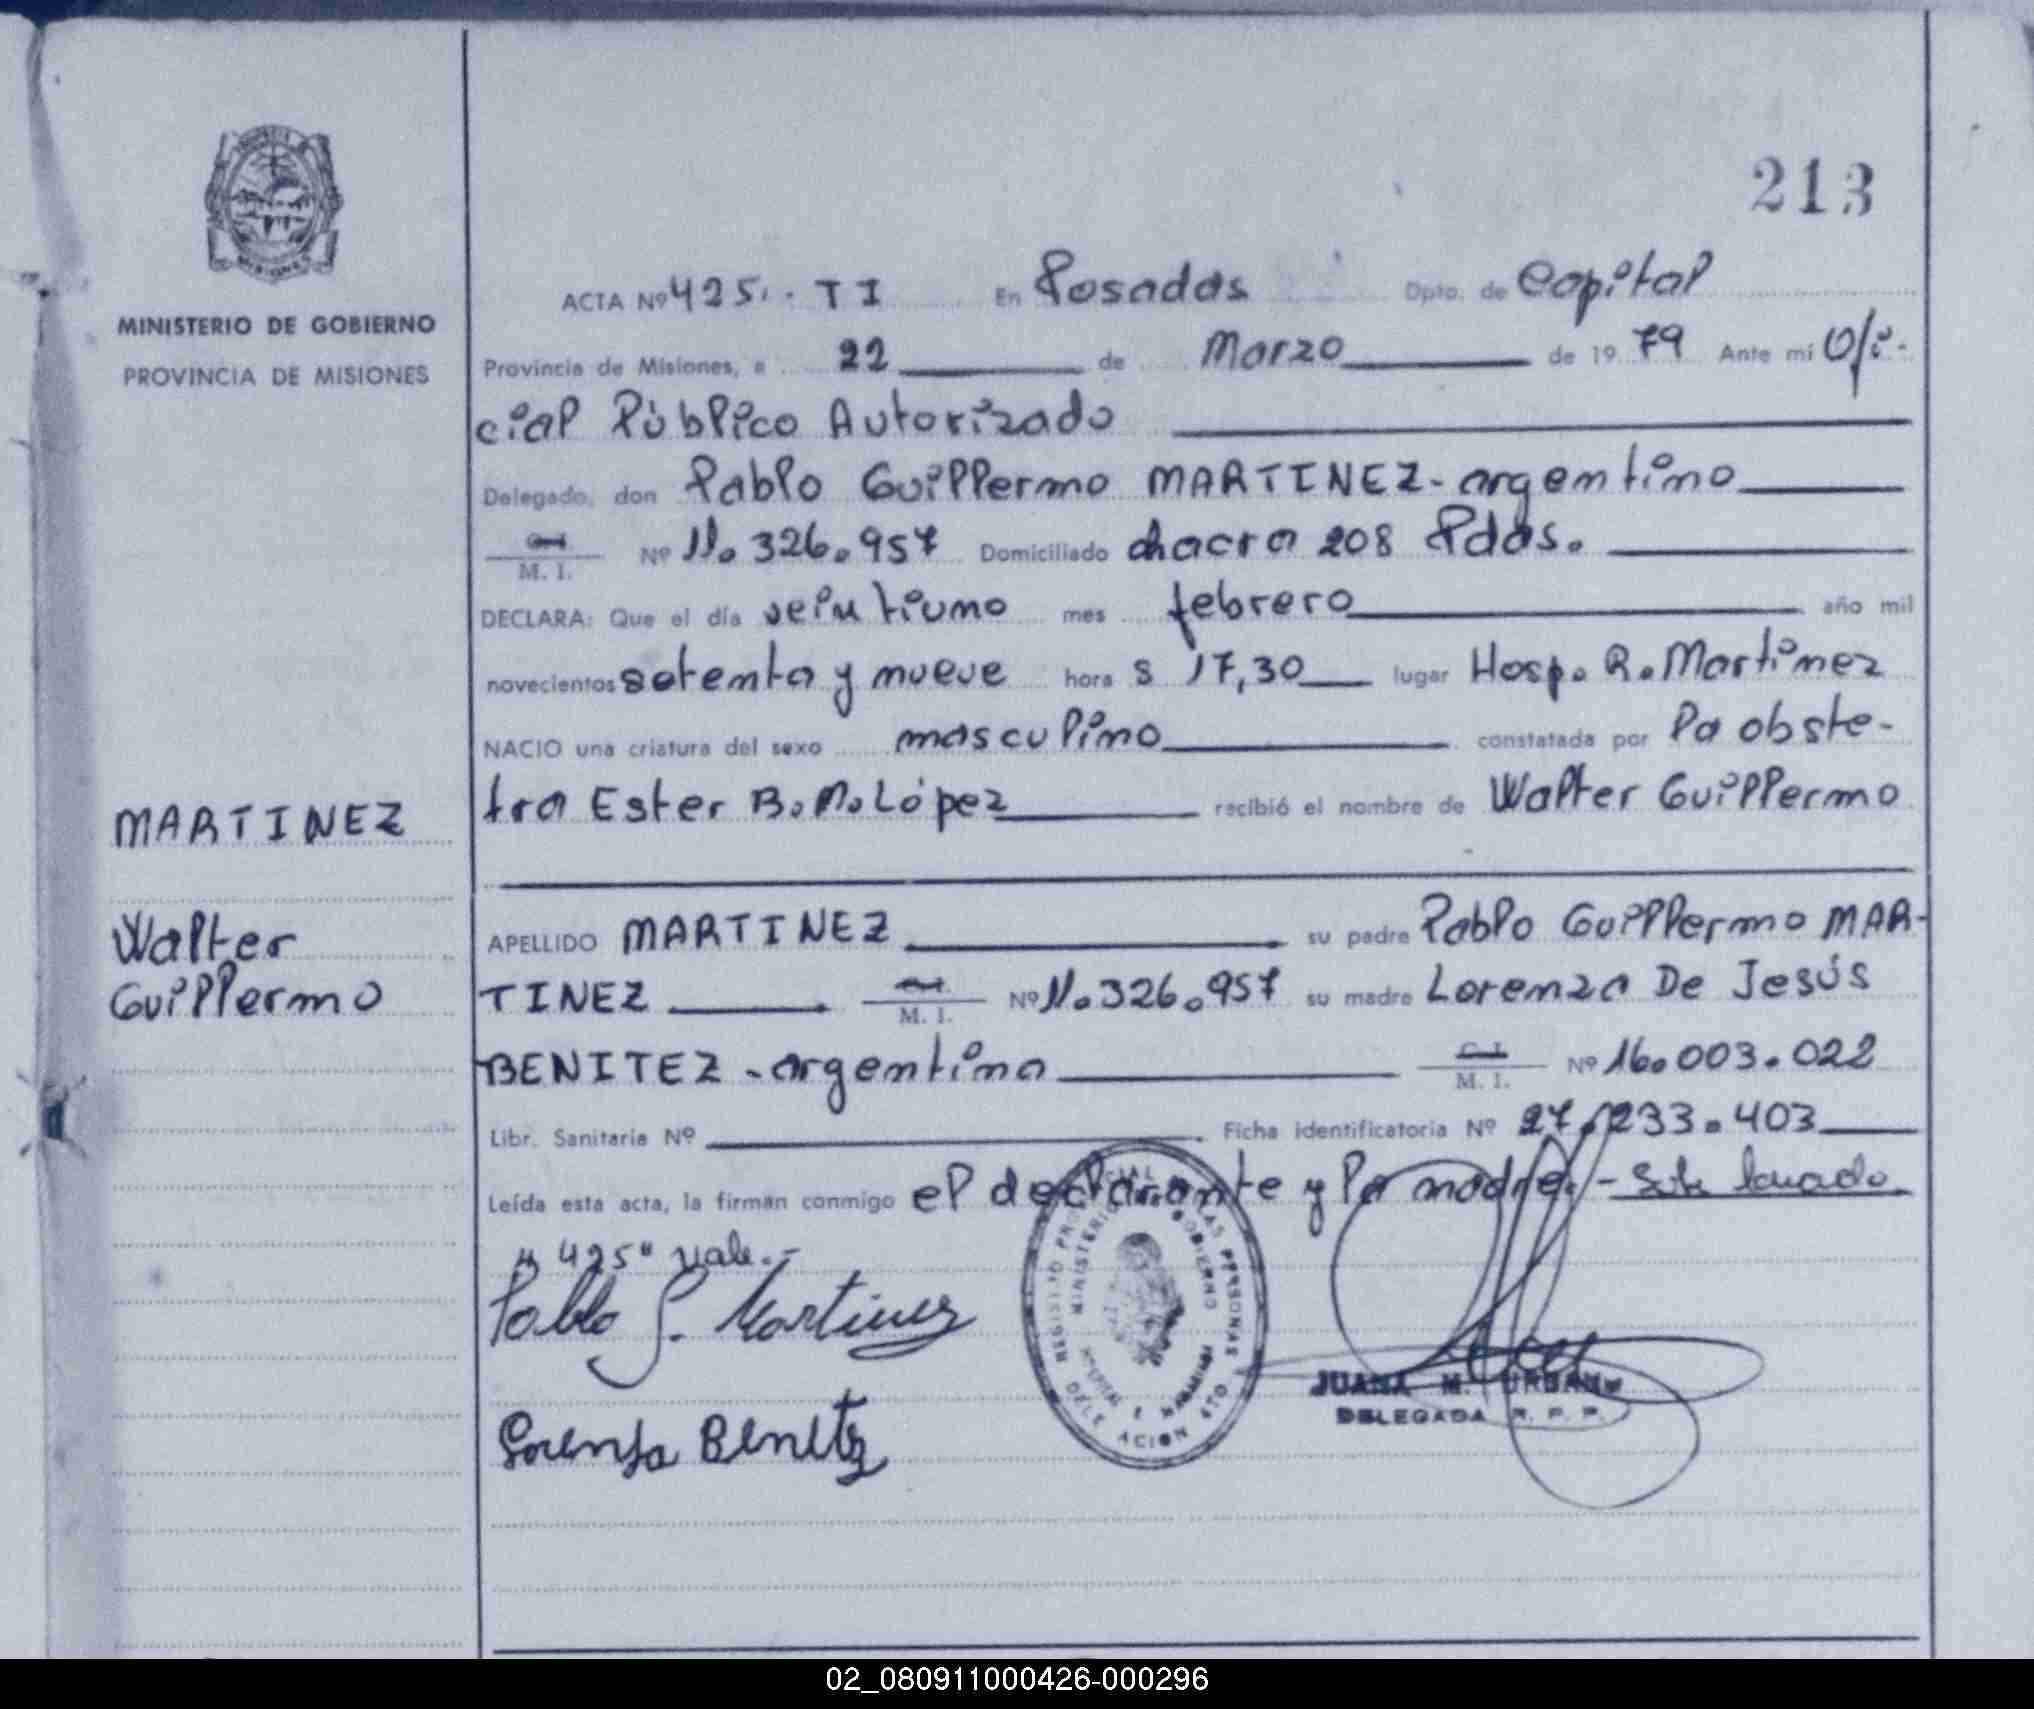 213
MINISTERIO DE GOBIERNO
PROVINCIA DE MISIONES
ACTA Nº 425.- TI En Posadas Dpto. de Capital
Provincia de Misiones, a 22 de Marzo de 1979 Ante mí Ofi-
cial Público Autorizado
Delegado, don Pablo Guillermo MARTINEZ-argentino
M. I. Nº 11.326.957 Domiciliado chacra 208 Pdas.
DECLARA: Que el día veintiuno mes febrero año mil
novecientos setenta y nueve hora s 17,30 lugar Hosp. R. Martinez
NACIO una criatura del sexo masculino constatada por la obste-
tra Ester B. M. López recibió el nombre de Walter Guillermo
MARTINEZ
Walter
Guillermo
APELLIDO MARTINEZ su padre Pablo Guillermo MAR-
TINEZ M. I. Nº 11.326.957 su madre Lorenza De Jesús
BENITEZ-argentina C. I. M. I. Nº 16.003.022
Libr. Sanitaria Nº Ficha identificatoria Nº 27.233.403
Leída esta acta, la firman conmigo el declarante y la madre.-
"425" vale.-
Pablo G. Martinez
Lorenza Benitez
REGISTRO PROVINCIAL DE LAS PERSONAS
MINISTERIO DE GOBIERNO
DELEGACION
JUANA M. URBANO
DELEGADA R. P. P.
02_080911000426-000296